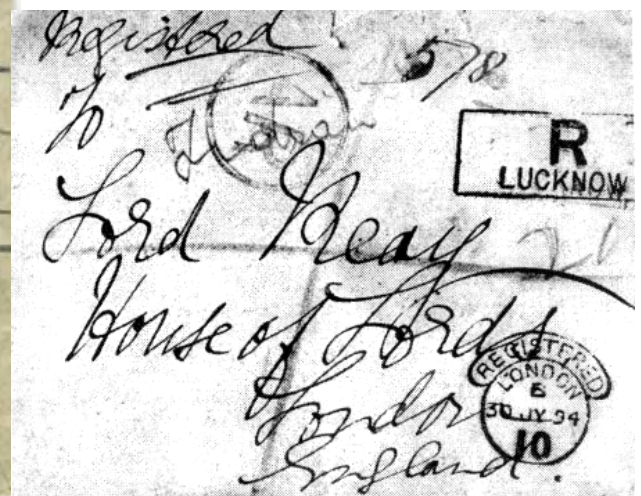 Registered
578
To
R
LUCKNOW
Lord Reay
House of Lords
London
England.
REGISTERED
LONDON
30 JY 94
10